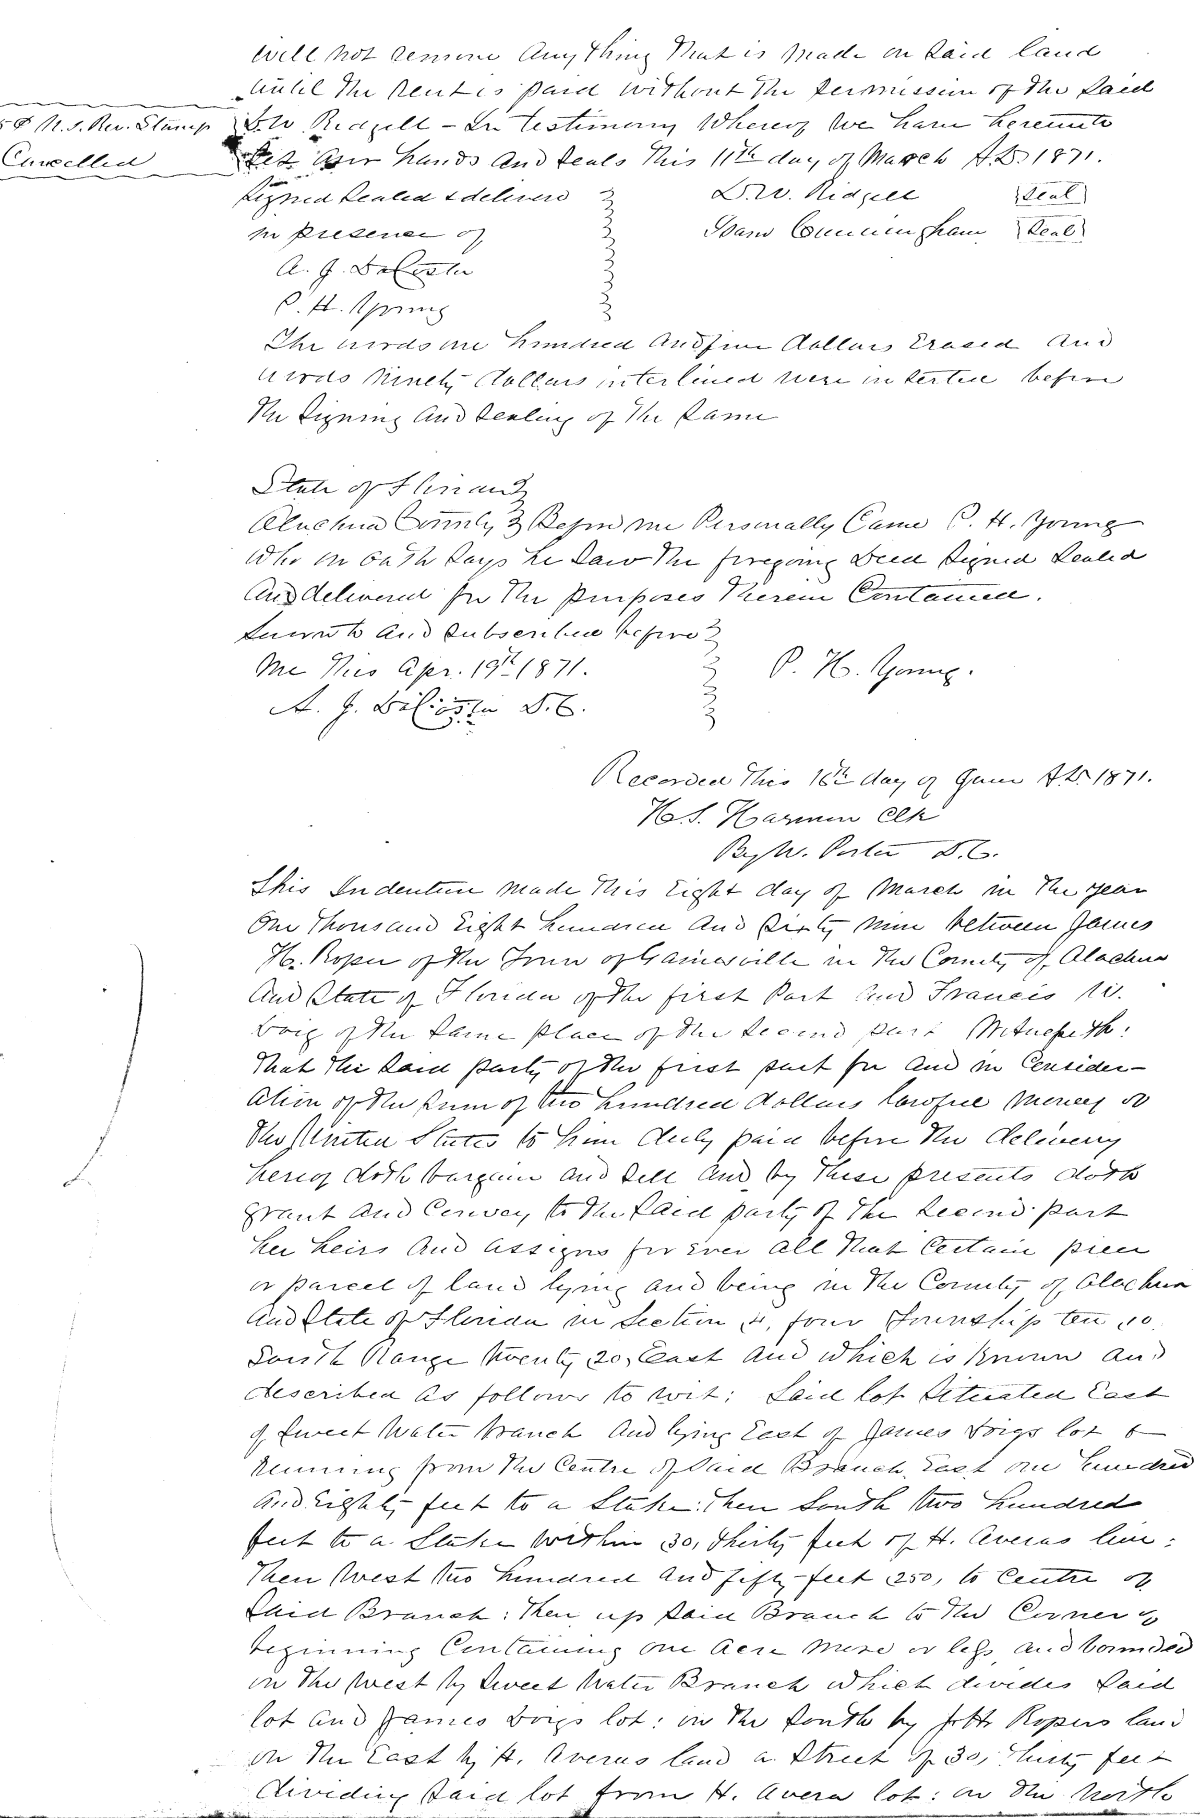 will not remove anything that is made on said land
until the rent is paid without the permission of the said
5¢ U.S. Rev. Stamp
Cancelled
D.W. Ridgell - In testimony whereof we have hereunto
set our hands and seals this 11th day of March A.D. 1871.
Signed sealed & delivered D.W. Ridgell (Seal)
in presence of Cunningham (Seal)
A. J. DaCosta
P. H. Young
The words one hundred and five dollars erased and
words ninety dollars interlined were inserted before
the signing and sealing of the same
State of Florida
Alachua County } Before me Personally Came P. H. Young
who on oath says he saw the foregoing Deed signed sealed
and delivered for the purposes therein Contained.
Sworn to and subscribed before
me this Apr. 19th 1871. P. H. Young.
A. J. DaCosta D.C.
Recorded this 16th day of June A.D. 1871.
H.S. Harmon Clk
By W. Porter D.C.
This Indenture made this Eight day of March in the year
One Thousand Eight hundred and sixty nine between James
H. Roper of the Town of Gainesville in the County of Alachua
and State of Florida of the first Part and Francis W.
Doig of the same place of the second part Witnesseth:
That the said party of the first part for and in Consider-
ation of the sum of two hundred dollars lawful money of
the United States to him duly paid before the delivery
hereof doth bargain and sell and by these presents doth
grant and Convey to the said party of the second part
her heirs and assigns for ever all that certain piece
or parcel of land lying and being in the County of Alachua
and State of Florida in Section 4, four Township ten 10
South Range twenty 20, East and which is known and
described as follows to wit: Said lot situated East
of Sweet Water branch and lying East of James Doigs lot &
running from the Centre of said Branch East one hundred
and Eighty feet to a Stake: then South two hundred
feet to a Stake within 30, thirty feet of H. Averas line:
Then West two hundred and fifty feet 250, to Centre of
said Branch: then up said Branch to the Corner of
beginning Containing one acre more or less, and bounded
on the West by Sweet Water Branch which divides said
lot and James Doigs lot: on the South by J.H. Ropers land
on the East by H. Averas land a Street of 30, thirty feet
dividing said lot from H. Avera lot: on the North